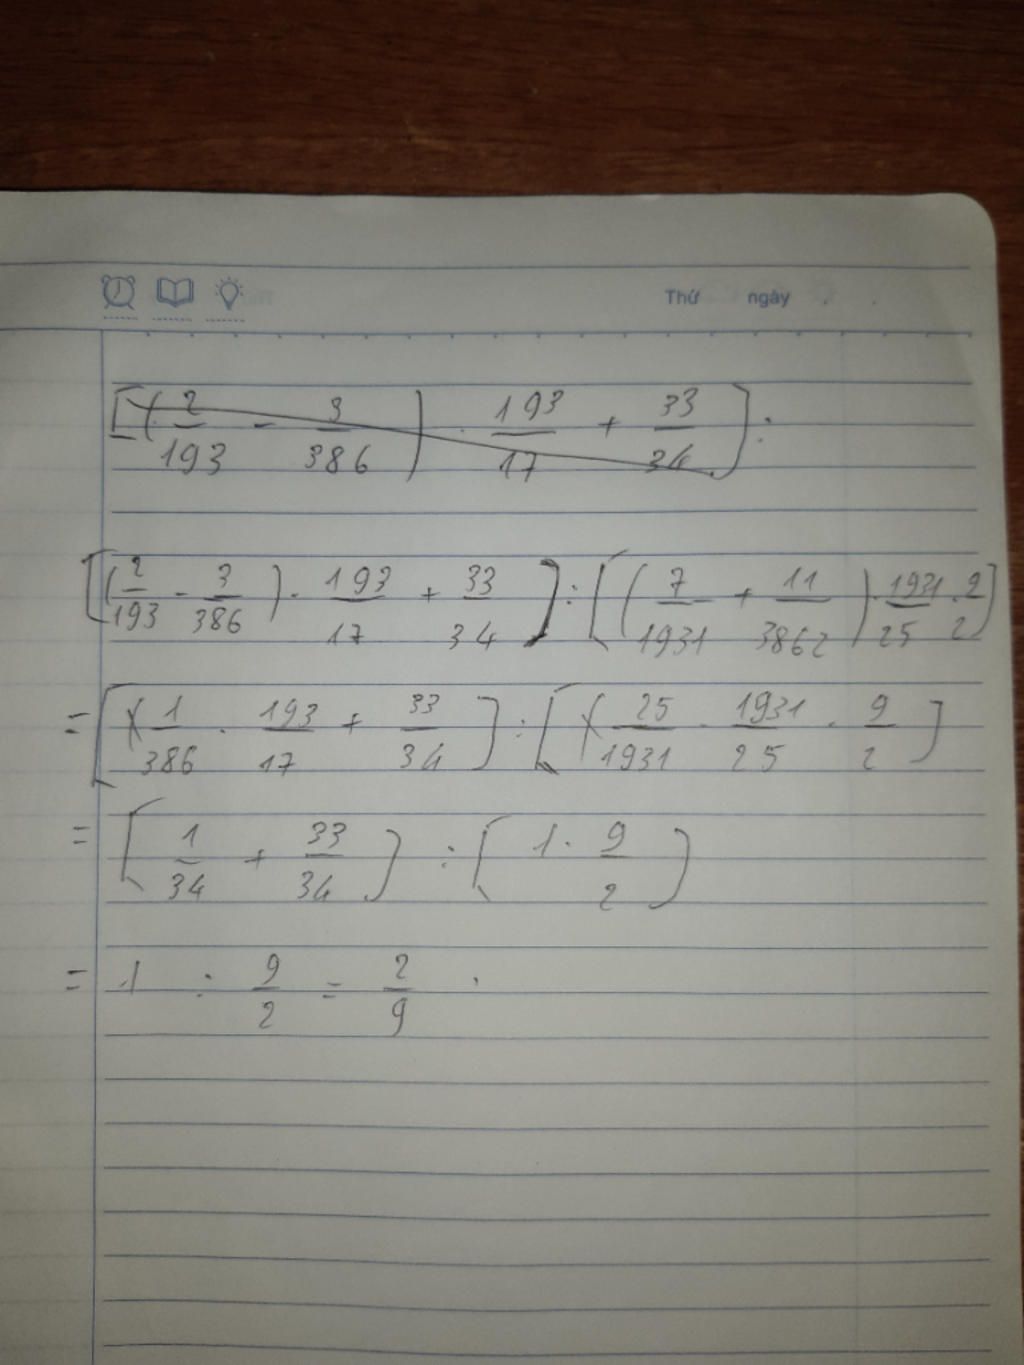 Thứ ngày
[(2/193 - 3/386) · 193/17 + 33/34] :
[(2/193 - 3/386) · 193/17 + 33/34] : [(7/1931 + 11/3862) · 1931/25 · 9/2]
= [(1/386 · 193/17 + 33/34] : [(25/1931 · 1931/25 · 9/2]
= [1/34 + 33/34] : [1 · 9/2]
= 1 : 9/2 = 2/9 .